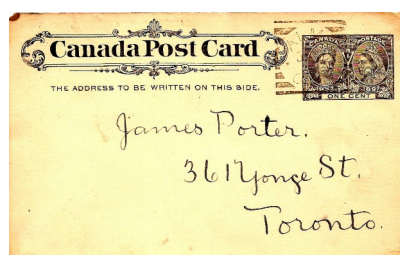 Canada Post Card
THE ADDRESS TO BE WRITTEN ON THIS SIDE.
CANADA POSTAGE
ONE CENT
James Porter.
361 Yonge St.
Toronto.